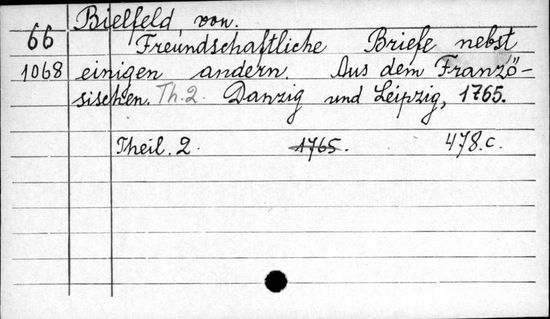 Bielfeld, von.
66 Freundschaftliche Briefe nebst
1068 einigen andern. Aus dem Franzö-
sischen. Th. 2. Danzig und Leipzig, 1765.
Theil. 2. 1765. 478.c.